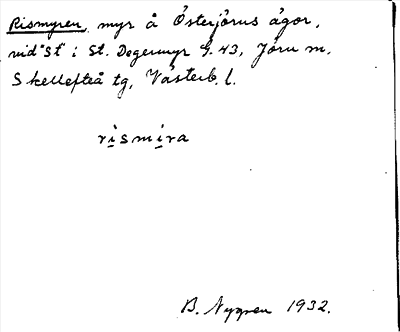 Rismyren, myr å Österjörns ägor,
vid "St" i St. Degermyr G. 43, Jörn m.
Skellefteå tg, Västerb. l.
rismira
B. Nygren 1932.